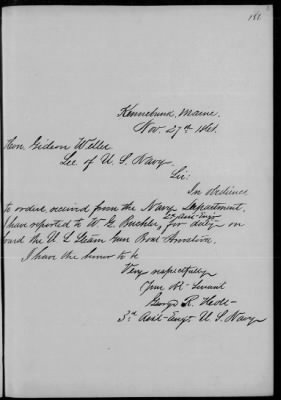 181.
Kennebunk, Maine.
Nov. 27th 1861.
Hon. Gideon Welles
Sec. of U. S. Navy.
Sir:
In obedience
to orders received from the Navy Department,
I have reported to W. G. Buehler, 1st Asst. Engr for duty on
board the U. S. Steam Gun Boat Aroostook.
I have the honor to be
Very respectfully
Your Ob't Servant
George R.
3rd Asst. Engr. U. S. Navy